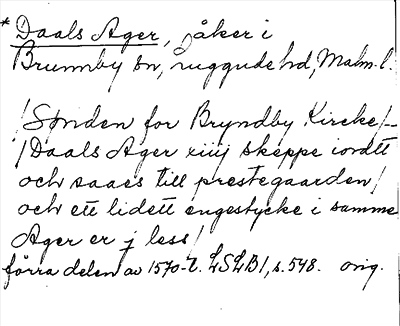 * Daals Ager, j åker i
Brunnby sn, Luggude hd, Malm. l.
/Sønden for Bryndby Kircke/—
/Daals Ager xiiij skeppe iordtt
och saaes till prestegaarden/
och ett lidett engestycke i samme
Ager er j less/
förra delen av 1570-t. LSLB1, s. 548. orig.